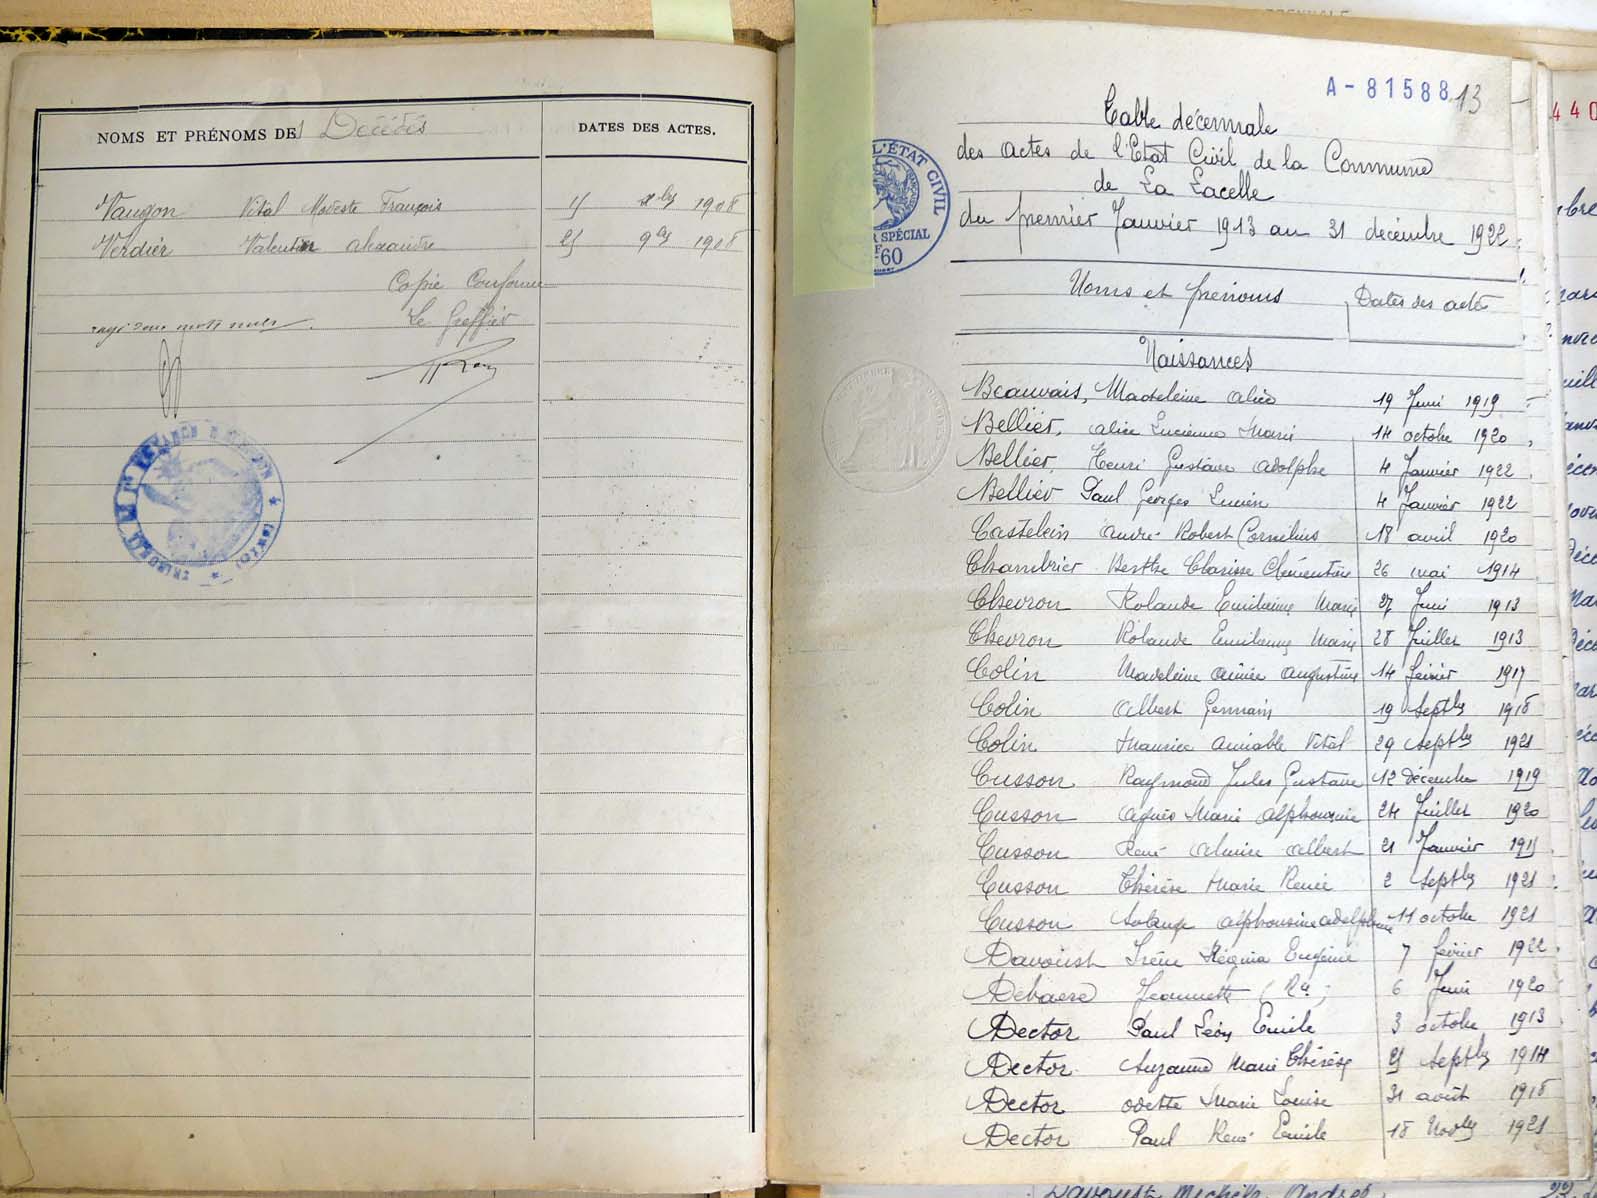 NOMS ET PRÉNOMS DES Décédés
DATES DES ACTES.
Vaugon Vital Modeste François 11 xbre 1908
Verdier Valentin alexandre 25 9bre 1908
Copie Conforme
Le Greffier
A-81588
13
Table décennale
des actes de l'Etat Civil de la Commune
de La Lacelle
du premier Janvier 1913 au 31 décembre 1922.
L'ÉTAT CIVIL
SPÉCIAL
60
Noms et prénoms
Dates des actes
Naissances
Beauvais, Madeleine Alice 19 Juin 1919
Bellier, alice Lucienne Marie 14 octobre 1920
Bellier, Henri Gustave Adolphe 4 Janvier 1922
Bellier Paul Georges Lucien 4 Janvier 1922
Castelein André Robert Cornélius 18 avril 1920
Chambrier Berthe Clarisse Clémentine 26 mai 1914
Chevron Rolande Emilienne Marie 27 Juin 1913
Chevron Rolande Emilienne Marie 28 Juillet 1913
Colin Madeleine aimée augustine 14 février 1917
Colin Albert Germain 19 Septbre 1918
Colin Maurice Aimable Vital 29 Septbre 1921
Cusson Raymond Jules Gustave 12 décembre 1919
Cusson Agnès Marie Alphonsine 24 Juillet 1920
Cusson René Albert 21 Janvier
Cusson Thérèse Marie Renée 2 Septbre 1921
Cusson Solange Alphonsine Adolphine 11 octobre 1921
Davoust Irène Régina Eugénie 7 février 1922
Debaere Jeannette 6 Juin 1920
Dector Paul Léon Emile 3 octobre 1913
Dector Suzanne Marie Thérèse 25 Septbre 1914
Dector Odette Marie Louise 31 août 1918
Dector Paul René Emile 18 Novbre 1921